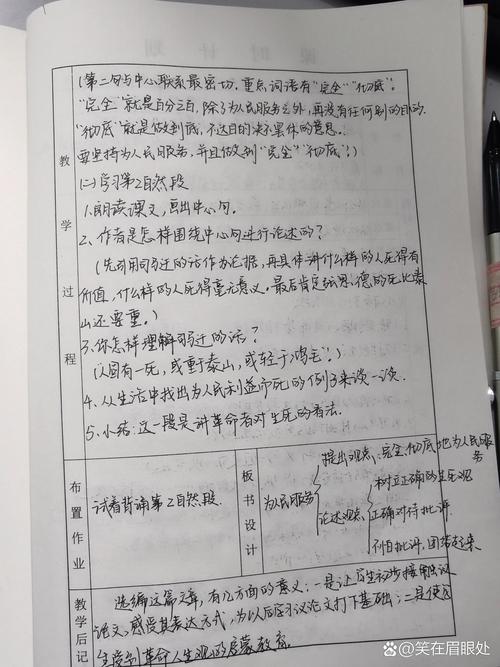 课时计划
教学过程
(第二句与中心联系最密切。重点词语有“完全”“彻底”。
“完全”就是百分之百,除了为人民服务之外,再没有任何别的目的。
“彻底”就是做到底,不达目的决不罢休的意思。
要坚持为人民服务,并且做到“完全”“彻底”。)
(二)学习第2自然段
1、朗读课文,画出中心句。
2、作者是怎样围绕中心句进行论述的?
(先引用司马迁的话作为论据,再具体讲什么样的人死得有
价值,什么样的人死得毫无意义。最后肯定张思德的死比泰
山还要重。)
3、你怎样理解司马迁的话?
(人固有一死,或重于泰山,或轻于鸿毛。)
4、从生活中找出为人民利益而死的例子来谈一谈。
5、小结:这一段是讲革命者对生死的看法。
布置作业
试着背诵第2自然段。
板书设计
为人民服务
提出观点:完全、彻底地为人民服
务
论述观点
树立正确的生死观
正确对待批评
不怕批评,团结起来
教学后记
选编这篇文章,有几方面的意义:一是让学生初步接触议
论文,感受其表达方式,为以后学习议论文打下基础;二是使学
生受到革命人生观的启蒙教育。
@笑在眉眼处